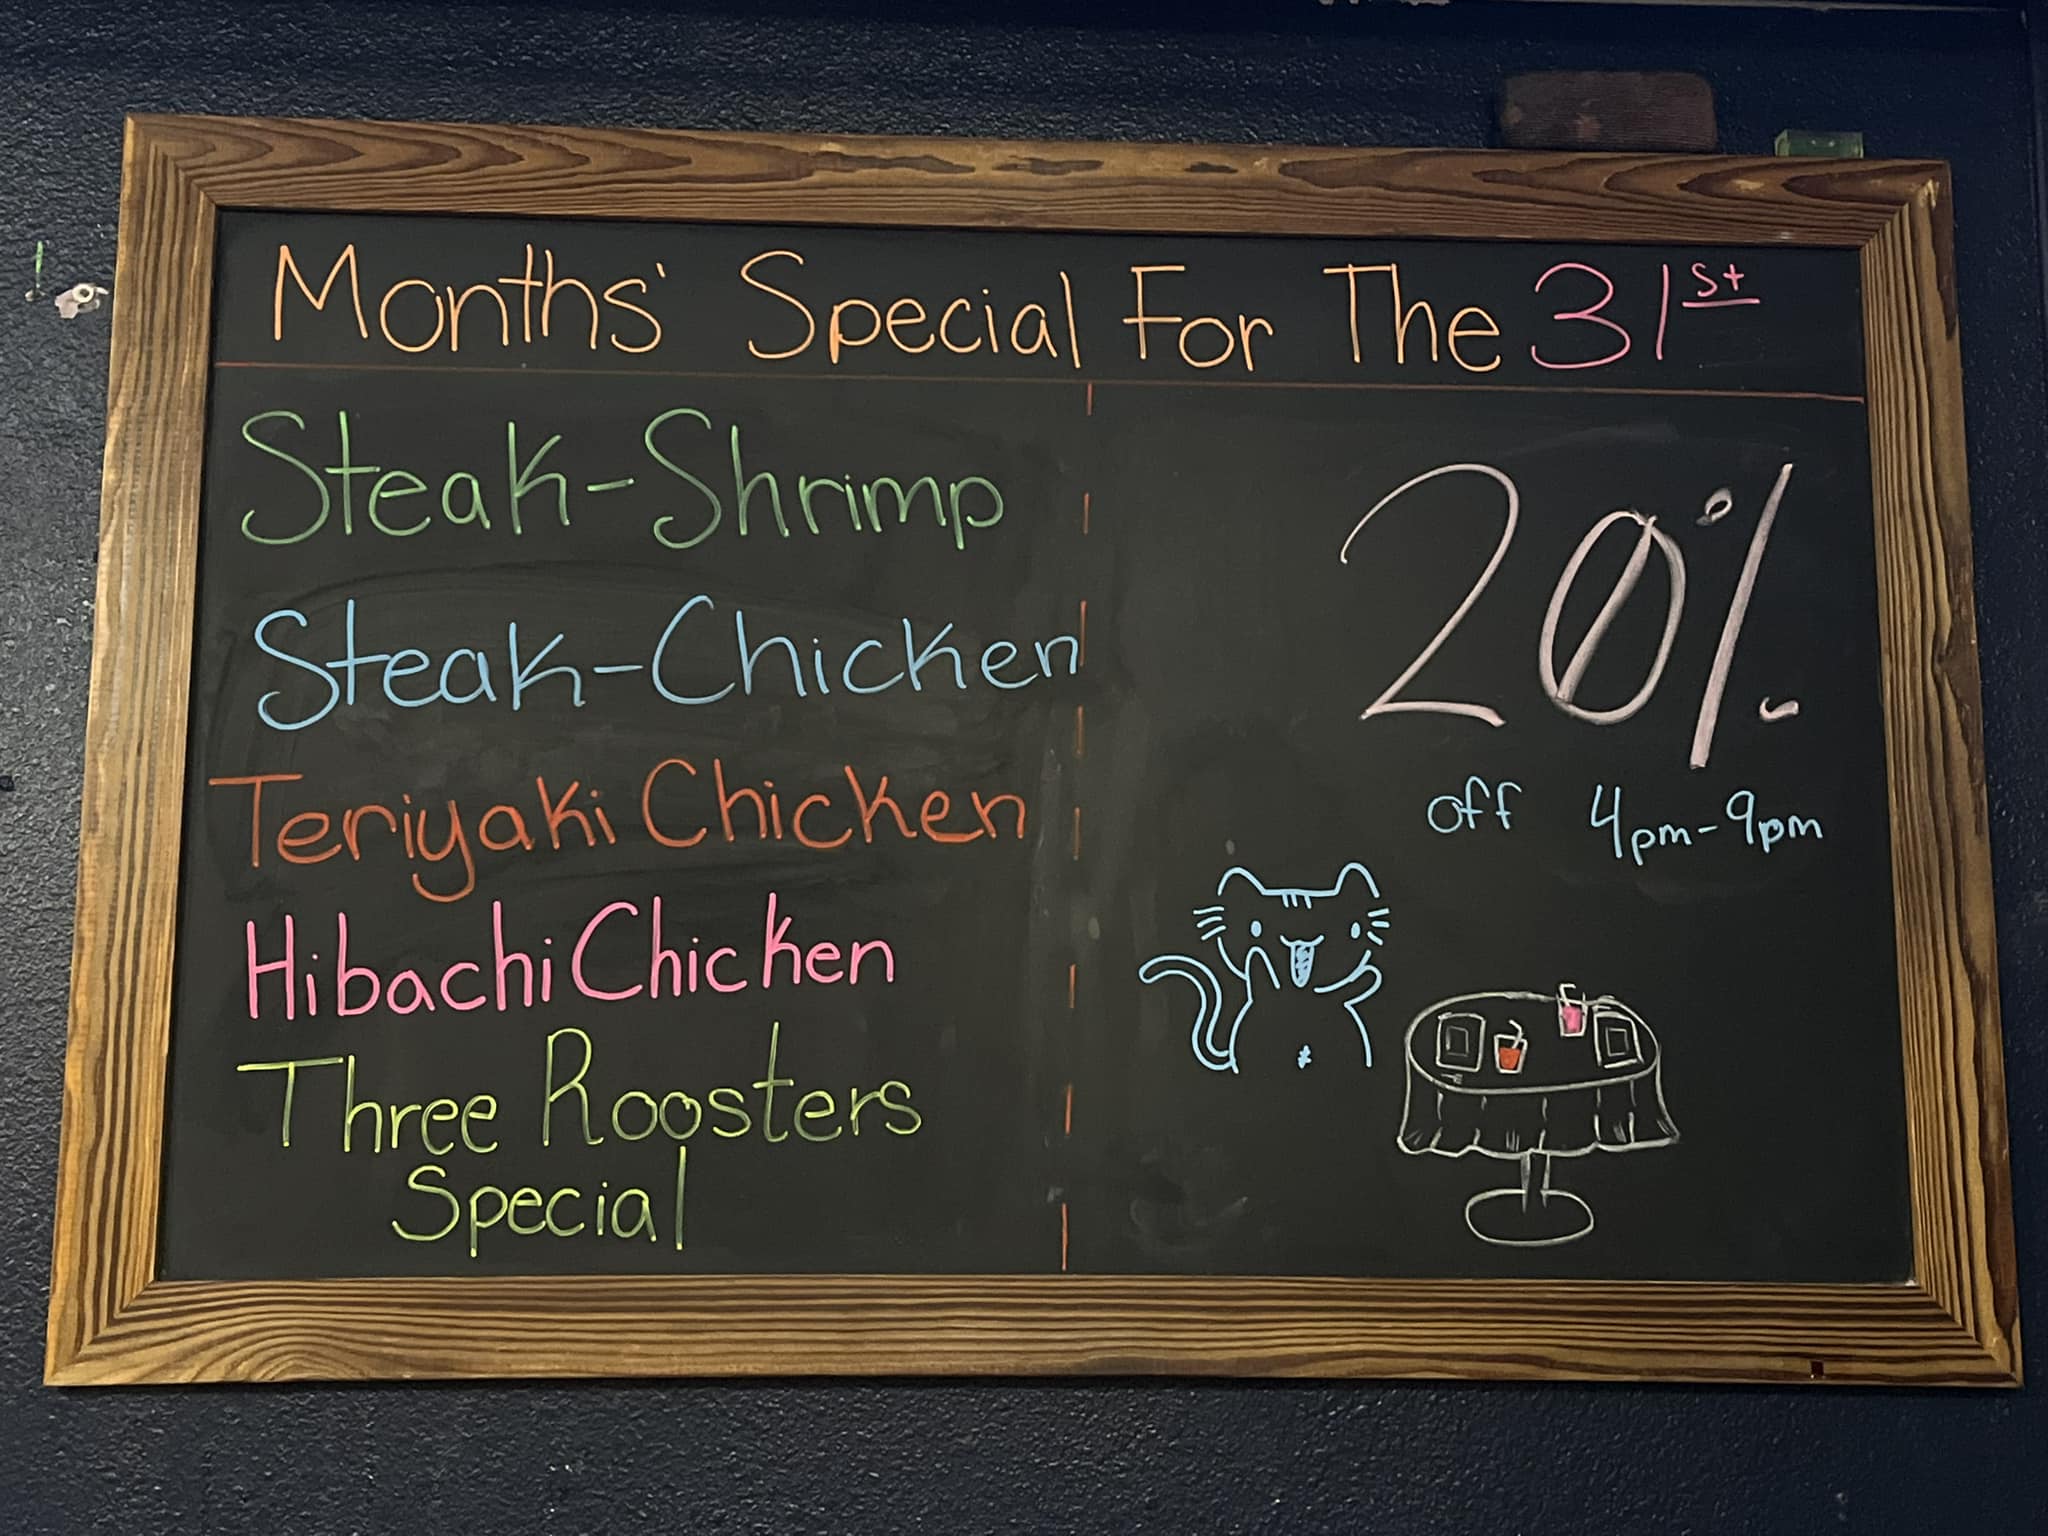 Months' Special For The 31st
Steak-Shrimp
Steak-Chicken
Teriyaki Chicken
Hibachi Chicken
Three Roosters
Special
20%
off 4pm-9pm